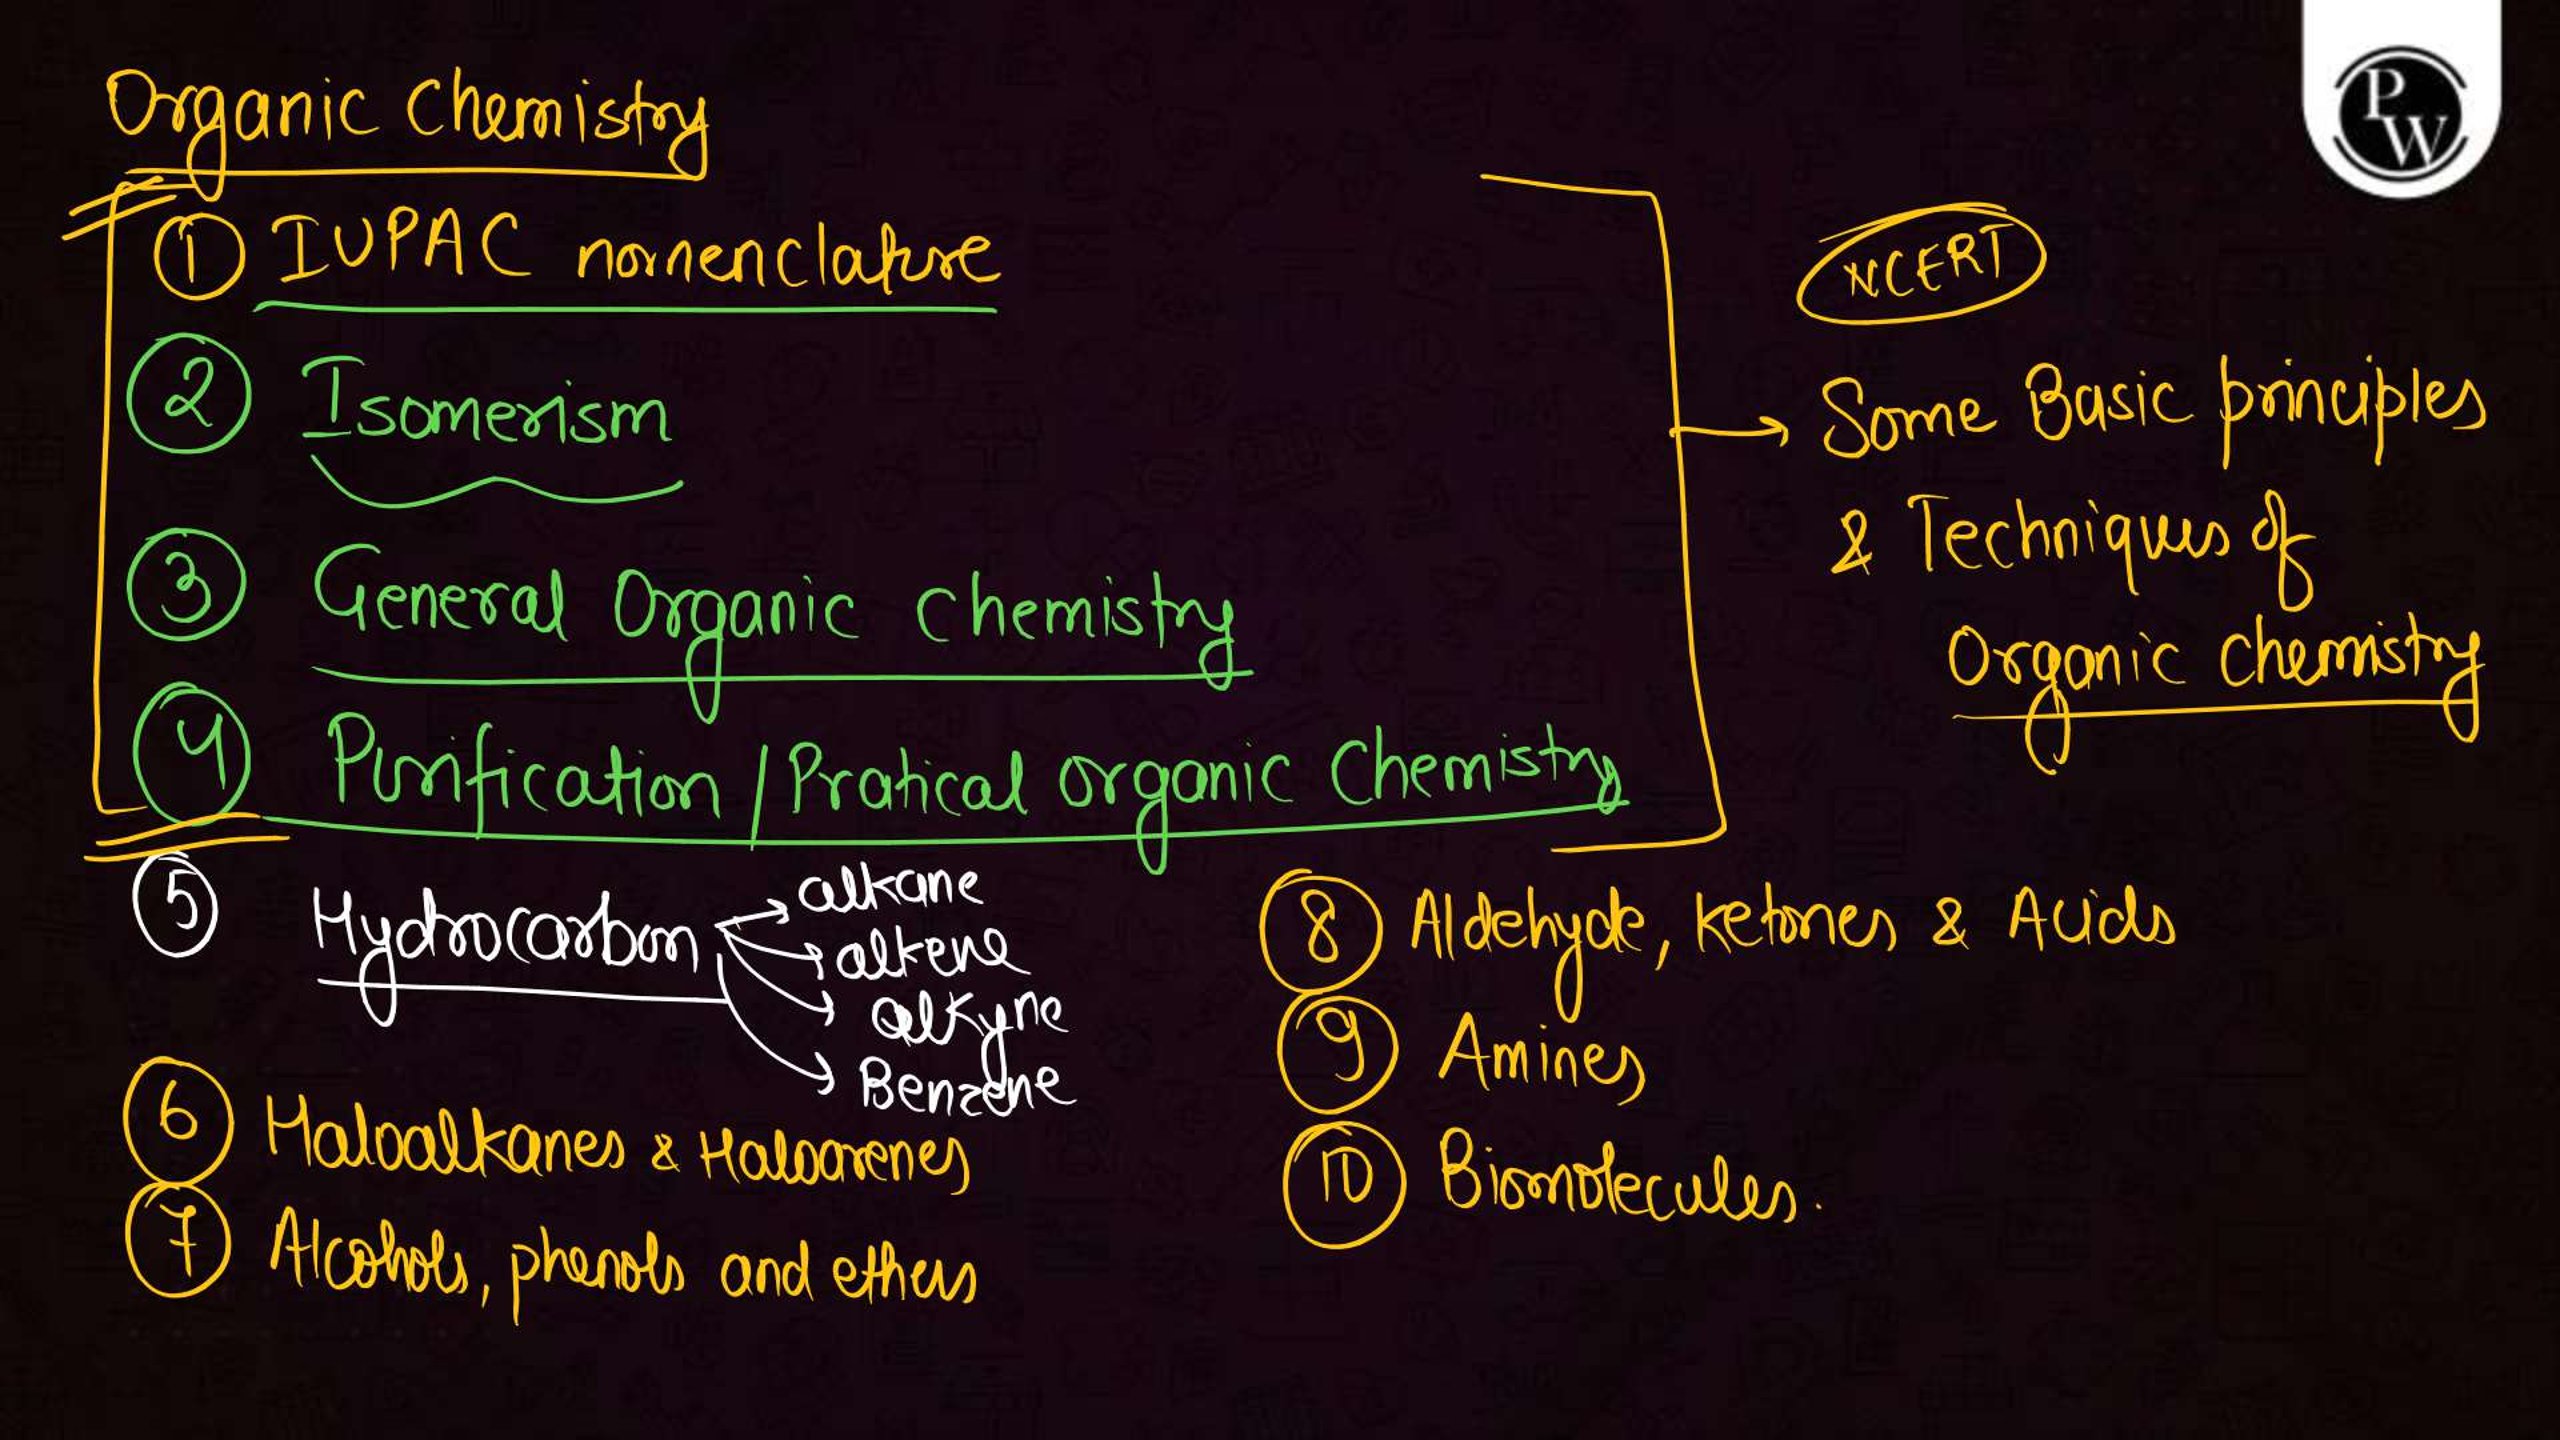 Organic Chemistry
PW
① IUPAC nomenclature
② Isomerism
③ General Organic Chemistry
④ Purification / Pratical Organic Chemistry
NCERT
Some Basic principles
& Techniques of
Organic Chemistry
⑤ Hydrocarbon
alkane
alkene
alkyne
Benzene
⑥ Haloalkanes & Haloarenes
⑦ Alcohols, phenols and ethers
⑧ Aldehyde, ketones & Acids
⑨ Amines
⑩ Biomolecules.